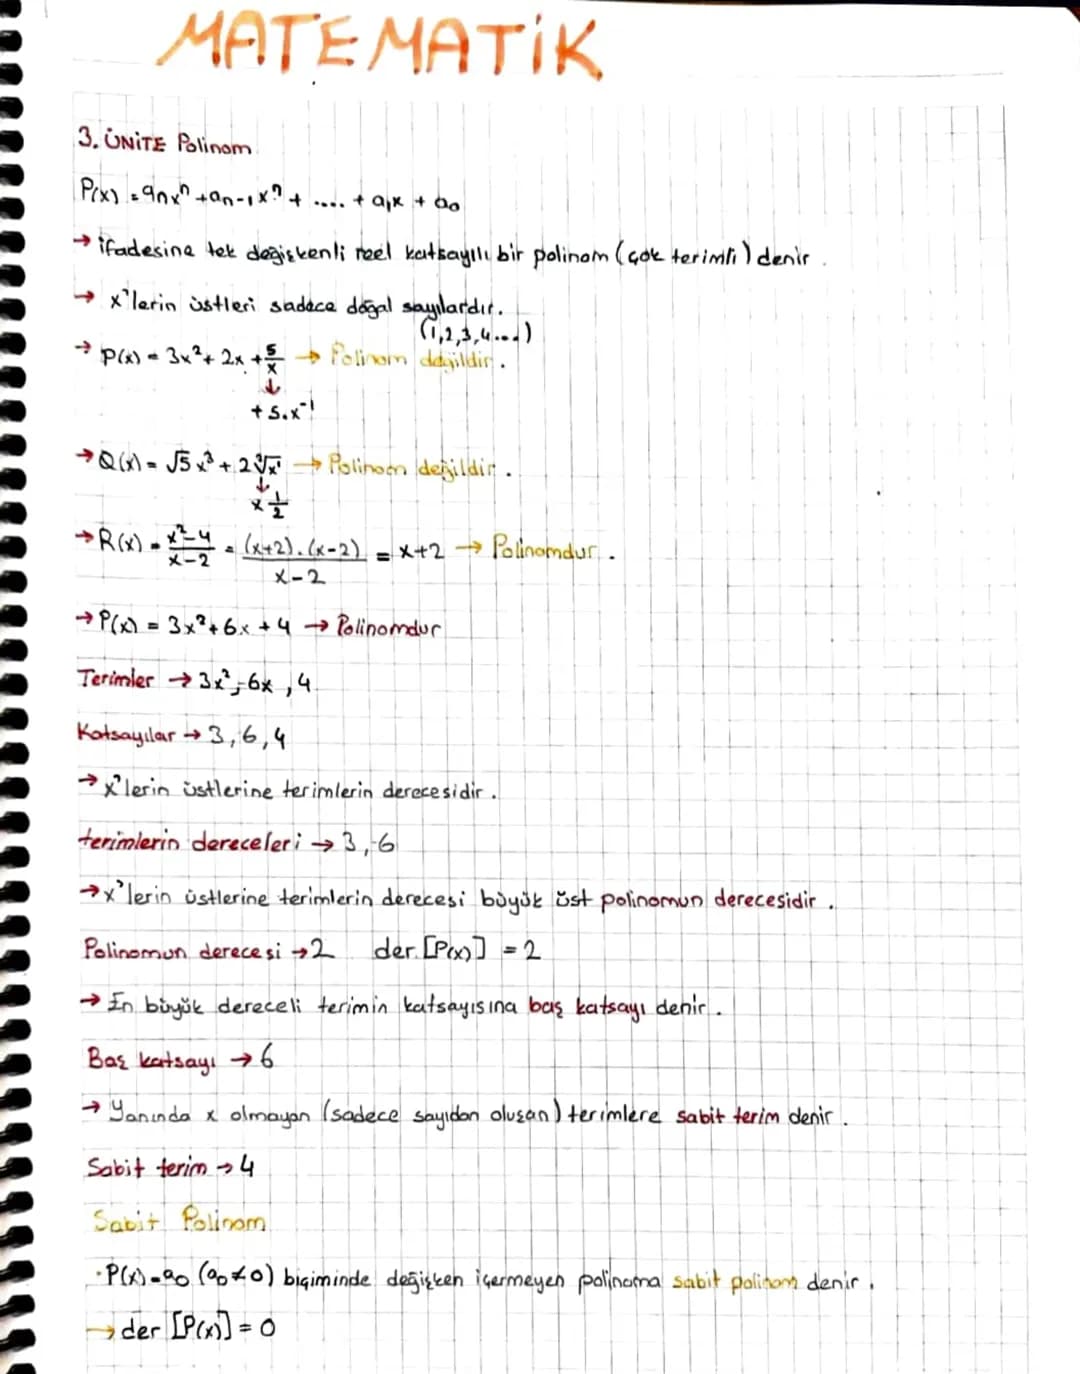 MATEMATİK
3. ÜNİTE Polinom
P(x) = anxⁿ + an-1xⁿ + .... + a₁x + a₀
→ ifadesine tek değişkenli reel katsayılı bir polinom (çok terimli) denir.
→ x'lerin üstleri sadece doğal sayılardır.
(1,2,3,4....)
→ P(x) = 3x² + 2x + 5/x → Polinom değildir.
↓
+ 5.x⁻¹
→ Q(x) = √5 x³ + 2∛x → Polinom değildir.
↓
x 1/2
→ R(x) = x²-4/x-2 = (x+2).(x-2)/x-2 = x+2 → Polinomdur.
→ P(x) = 3x² + 6x + 4 → Polinomdur
Terimler → 3x², 6x, 4
Katsayılar → 3, 6, 4
→ x'lerin üstlerine terimlerin derecesidir.
terimlerin dereceleri → 3, 6
→ x'lerin üstlerine terimlerin derecesi büyük üst polinomun derecesidir.
Polinomun derecesi → 2 der. [P(x)] = 2
→ En büyük dereceli terimin katsayısına baş katsayı denir.
Baş katsayı → 6
→ Yanında x olmayan (sadece sayıdan oluşan) terimlere sabit terim denir.
Sabit terim → 4
Sabit Polinom
• P(x) = a₀ (a₀≠0) biçiminde değişken içermeyen polinoma sabit polinom denir.
→ der [P(x)] = 0